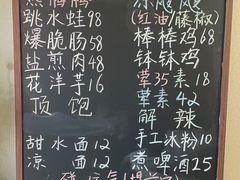 跳水蛙98
爆脆肠58
盐煎肉48
花洋芋16
顶饱
甜水面12
凉面12
凉飕飕
(红油/藤椒)
棒棒鸡68
钵钵鸡
荤35素18
荤素42
解辣
手工冰粉10
煮啤酒25